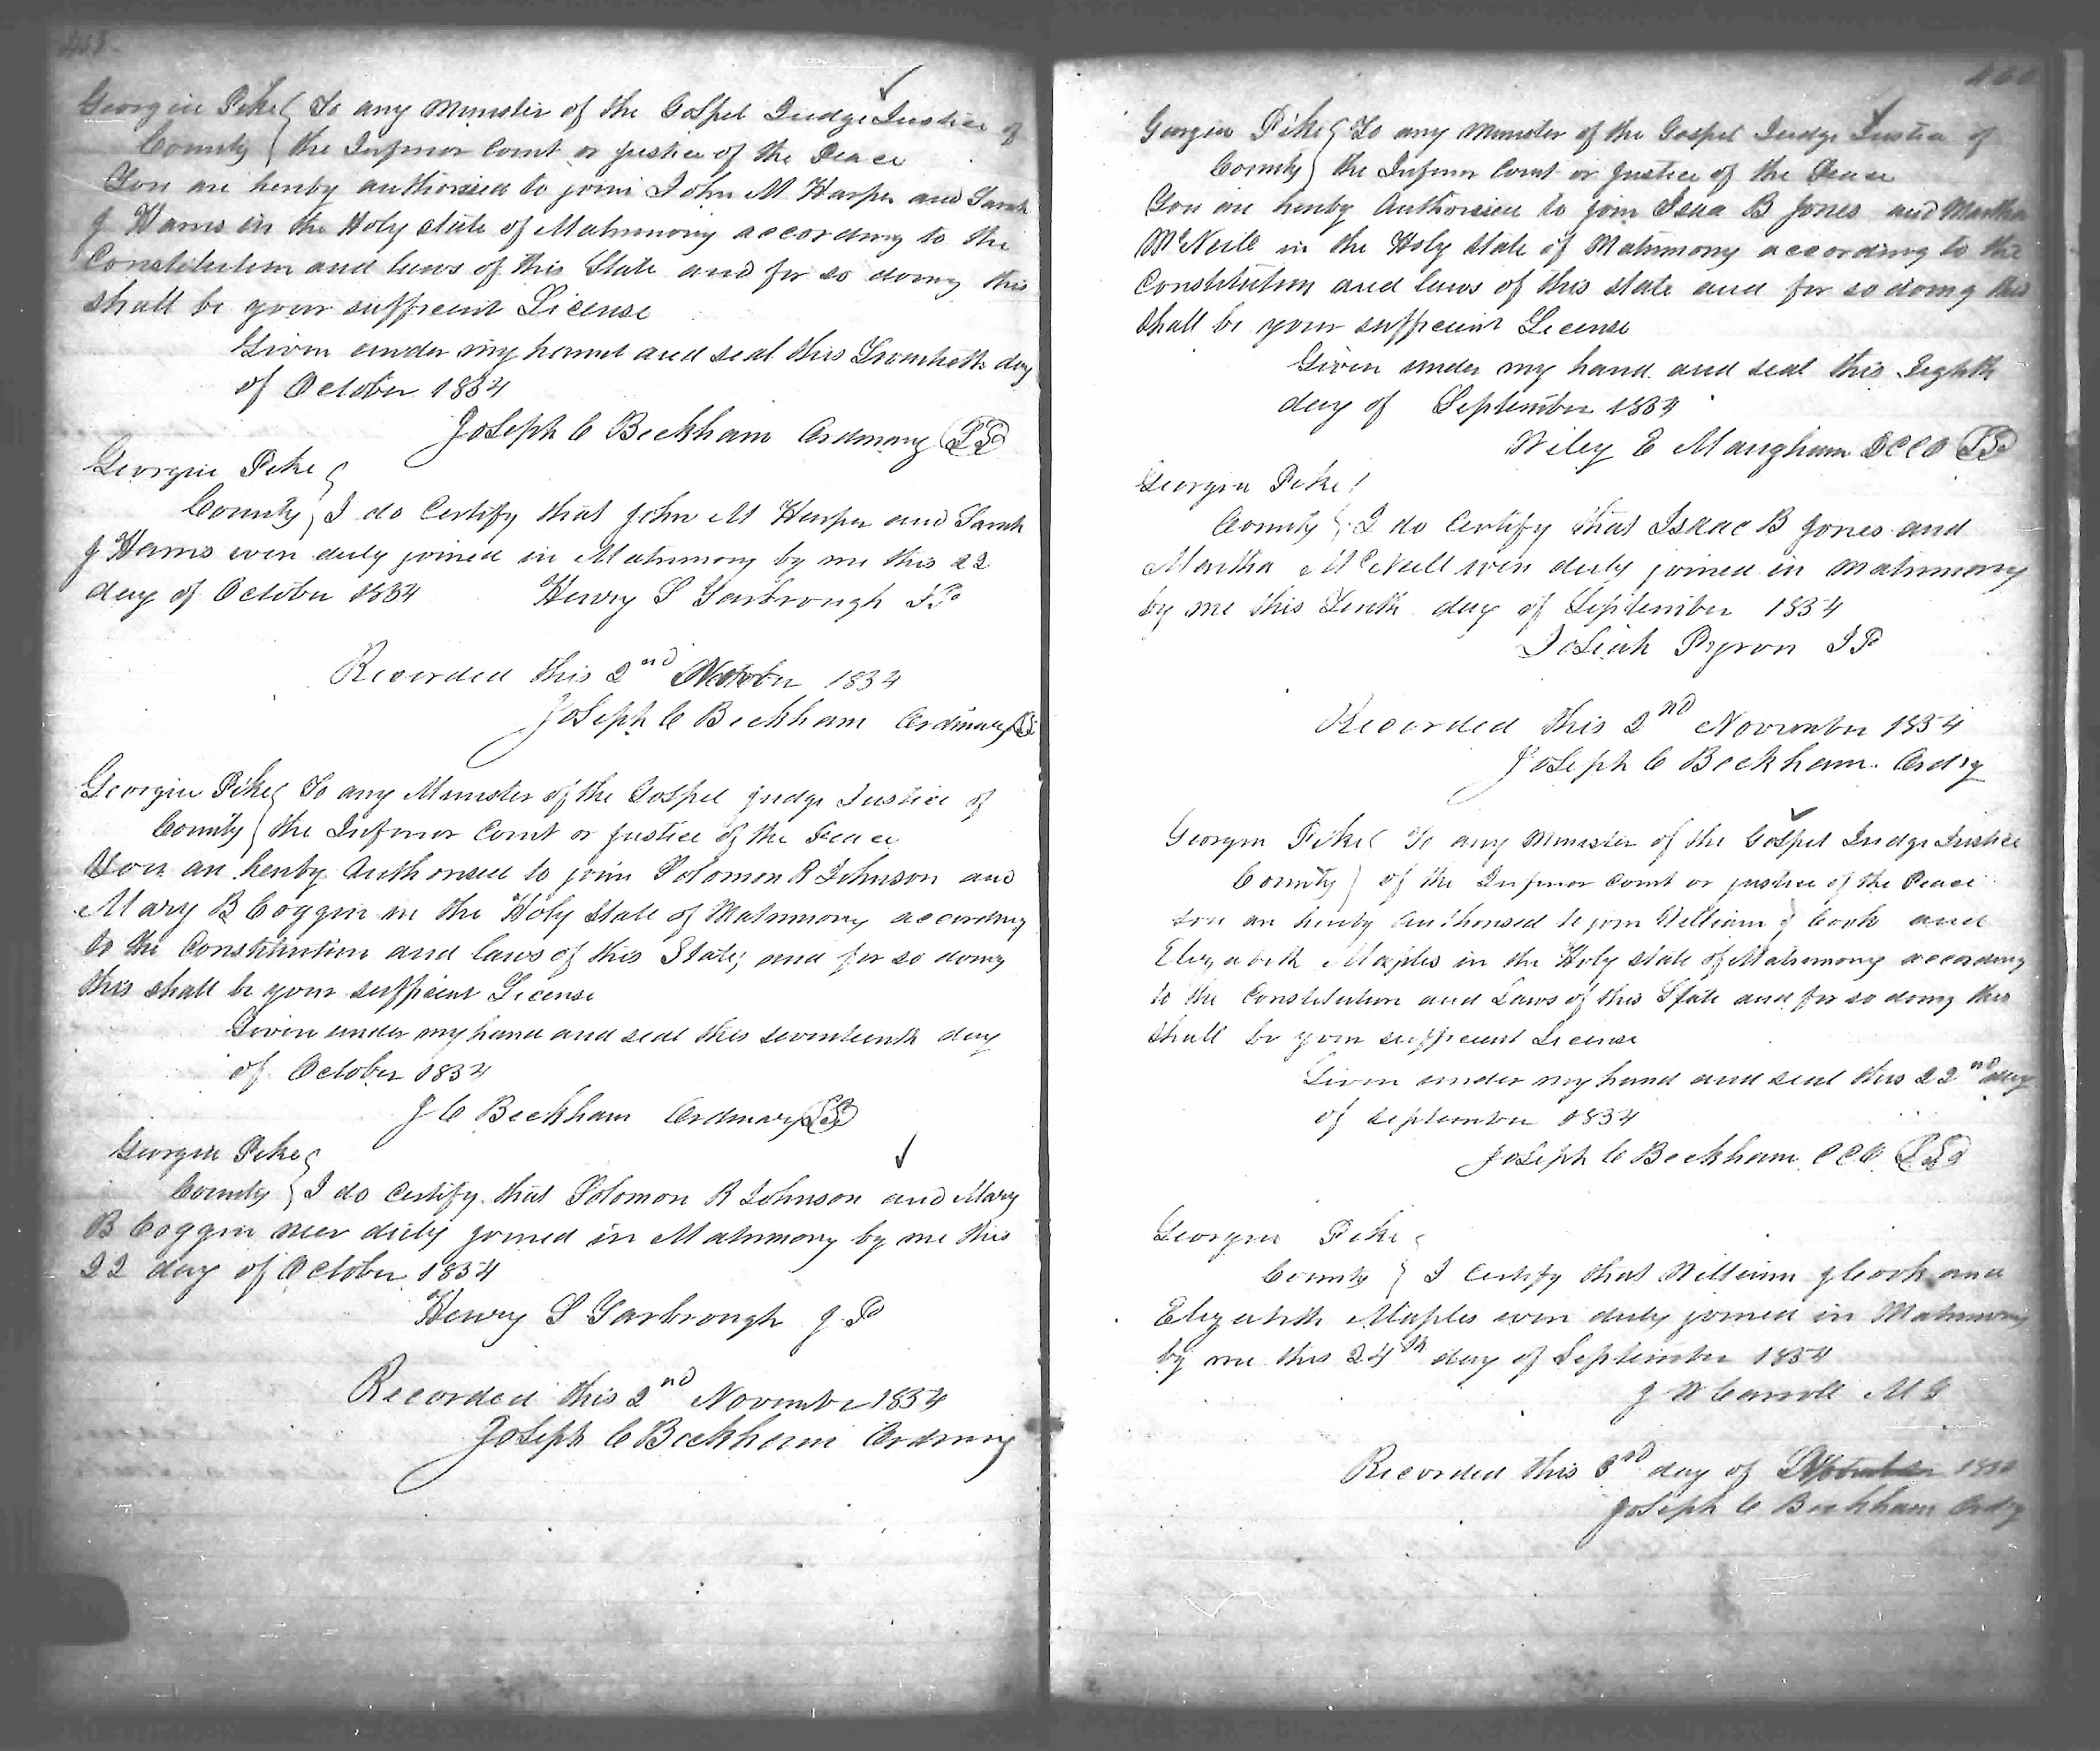 Georgia Pike To any Minister of the Gospel Judge Justice of
County the Inferior Court or Justice of the Peace
You are hereby authorised to join John M Harper and Sarah
J Harris in the Holy state of Matrimony according to the
Constitution and laws of this State and for so doing this
shall be your sufficient License
Given under my hand and seal this Twentieth day
of October 1854
Joseph C Beckham Ordinary LS
Georgia Pike
County I do Certify that John M Harper and Sarah
J Harris were duly joined in Matrimony by me this 22
day of October 1854 Henry S Yarbrough JP
Recorded this 2nd 1854
Joseph C Beckham Ordinary LS
Georgia Pike To any Minister of the Gospel Judge Justice of
County the Inferior Court or Justice of the Peace
You are hereby Authorised to join Solomon R Johnson and
Mary B Coggin in the Holy State of Matrimony according
to the Constitution and laws of this State, and for so doing
this shall be your sufficient License
Given under my hand and seal this seventeenth day
of October 1854
J C Beckham Ordinary LS
Georgia Pike
County I do Certify that Solomon R Johnson and Mary
B Coggin were duly joined in Matrimony by me this
22 day of October 1854
Henry S Yarbrough J.P
Recorded this 2nd November 1854
Joseph C Beckham Ordinary
Georgia Pike To any Minister of the Gospel Judge Justice of
County the Inferior Court or Justice of the Peace
You are hereby Authorised to join Isaa B Jones and Martha
McNeill in the Holy State of Matrimony according to the
Constitution and laws of this state and for so doing this
shall be your sufficient License
Given under my hand and seal this Eighth
day of September 1854
Wiley E Mangham DCCO LS
Georgia Pike
County I do Certify that Isaac B Jones and
Martha McNeill were duly joined in matrimony
by me this Tenth day of September 1854
Josiah Pyron JP
Recorded this 2nd November 1854
Joseph C Beckham Ordry
Georgia Pike To any Minister of the Gospel Judge Justice
County of the Inferior Court or justice of the Peace
You are hereby Authorised to join William J Cook and
Elizabeth Maples in the Holy state of Matrimony according
to the Constitution and Laws of this State and for so doing this
shall be your sufficient License
Given under my hand and seal this 22nd day
of September 1854
Joseph C Beckham CCO LS
Georgia Pike
County I Certify that William J Cook and
Elizabeth Maples were duly joined in Matrimony
by me this 24th day of September 1854
J W Carroll MG
Recorded this 3rd day of
Joseph C Beckham Ordry